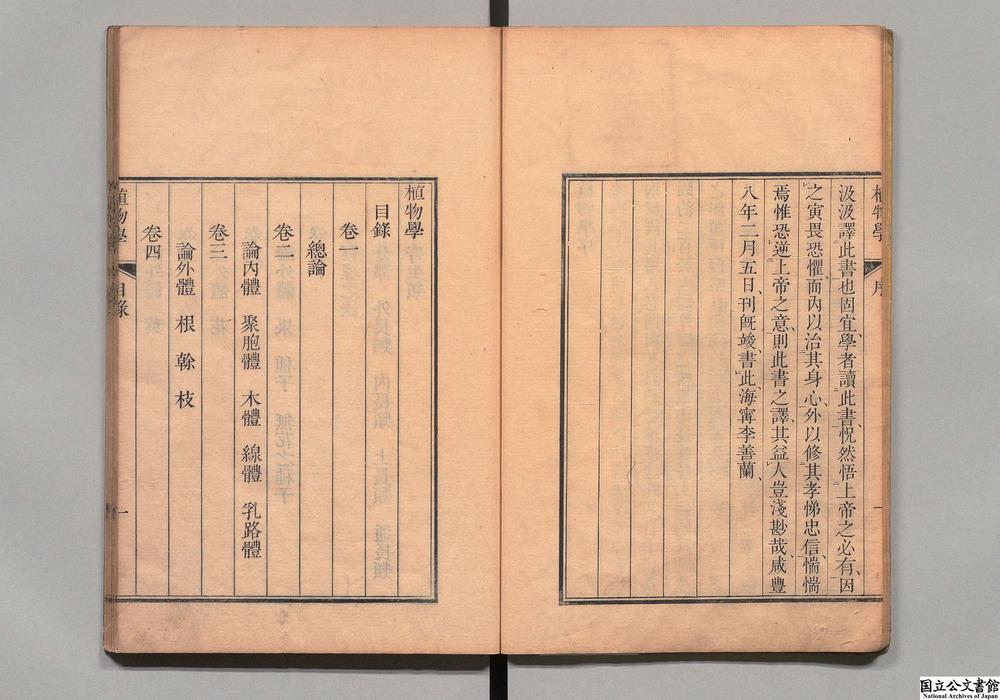 植物學 序
汲汲譯此書也固宜學者讀此書怳然悟上帝之必有因
之寅畏恐懼而內以治其身心外以修其孝悌忠信惴惴
焉惟恐逆上帝之意則此書之譯其益人豈淺尠哉咸豐
八年二月五日刊旣竣書此海甯李善蘭
植物學
目錄
卷一
總論
卷二
論內體 聚胞體 木體 線體 乳路體
卷三
論外體 根 榦 枝
卷四
植物學 目錄 一
国立公文書館
National Archives of Japan